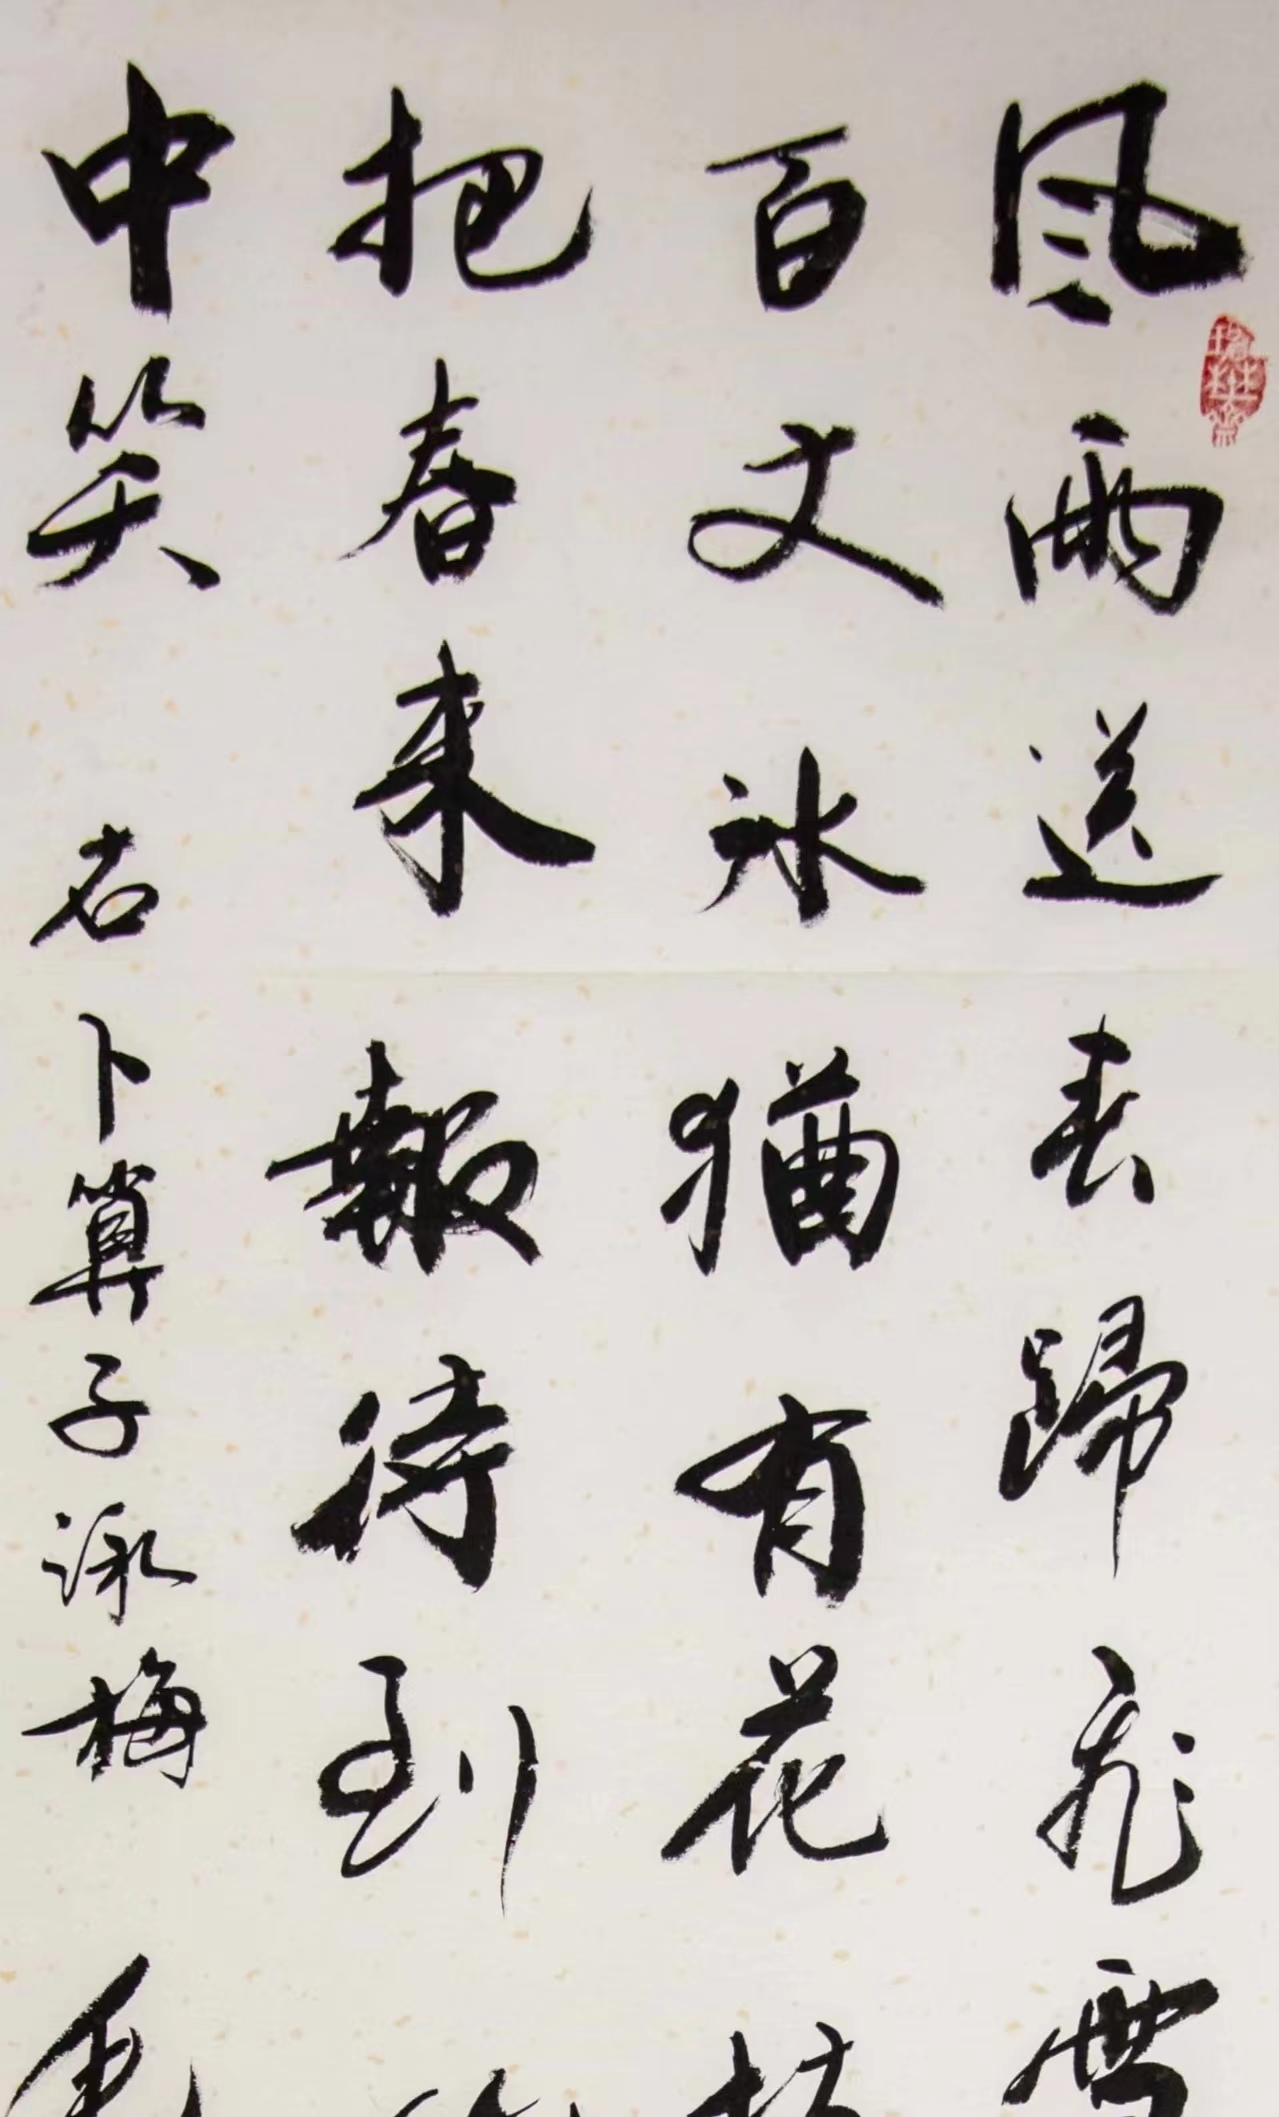 风雨送春歸飛雪
百丈冰猶有花枝
把春来報待到
中笑 右卜算子詠梅